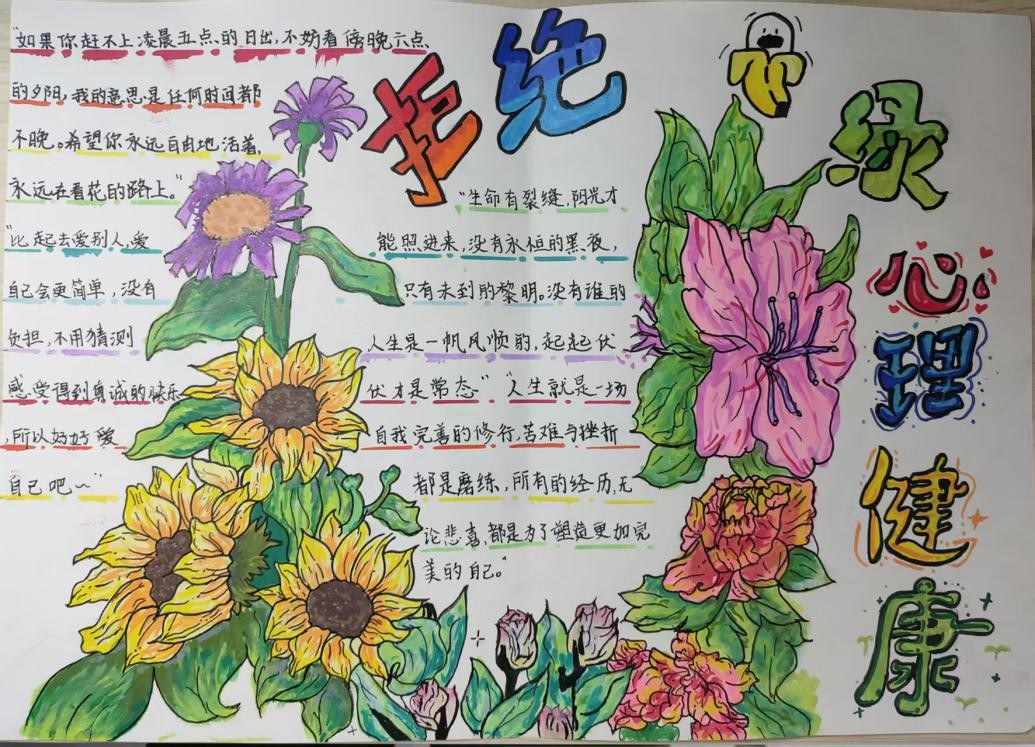 拒绝
绿
心理健康
"如果你赶不上凌晨五点的日出,不妨看傍晚六点
的夕阳,我的意思是任何时间都
不晚。希望你永远自由地活着,
永远在看花的路上。"
"比起去爱别人,爱
自己会更简单,没有
负担,不用猜测
感受得到真诚的快乐
,所以好好爱
自己吧~"
"生命有裂缝,阳光才
能照进来,没有永恒的黑夜,
只有未到的黎明。没有谁的
人生是一帆风顺的,起起伏
伏才是常态"“人生就是一场
自我完善的修行,苦难与挫折
都是磨练,所有的经历,无
论悲喜,都是为了塑造更加完
美的自己。"